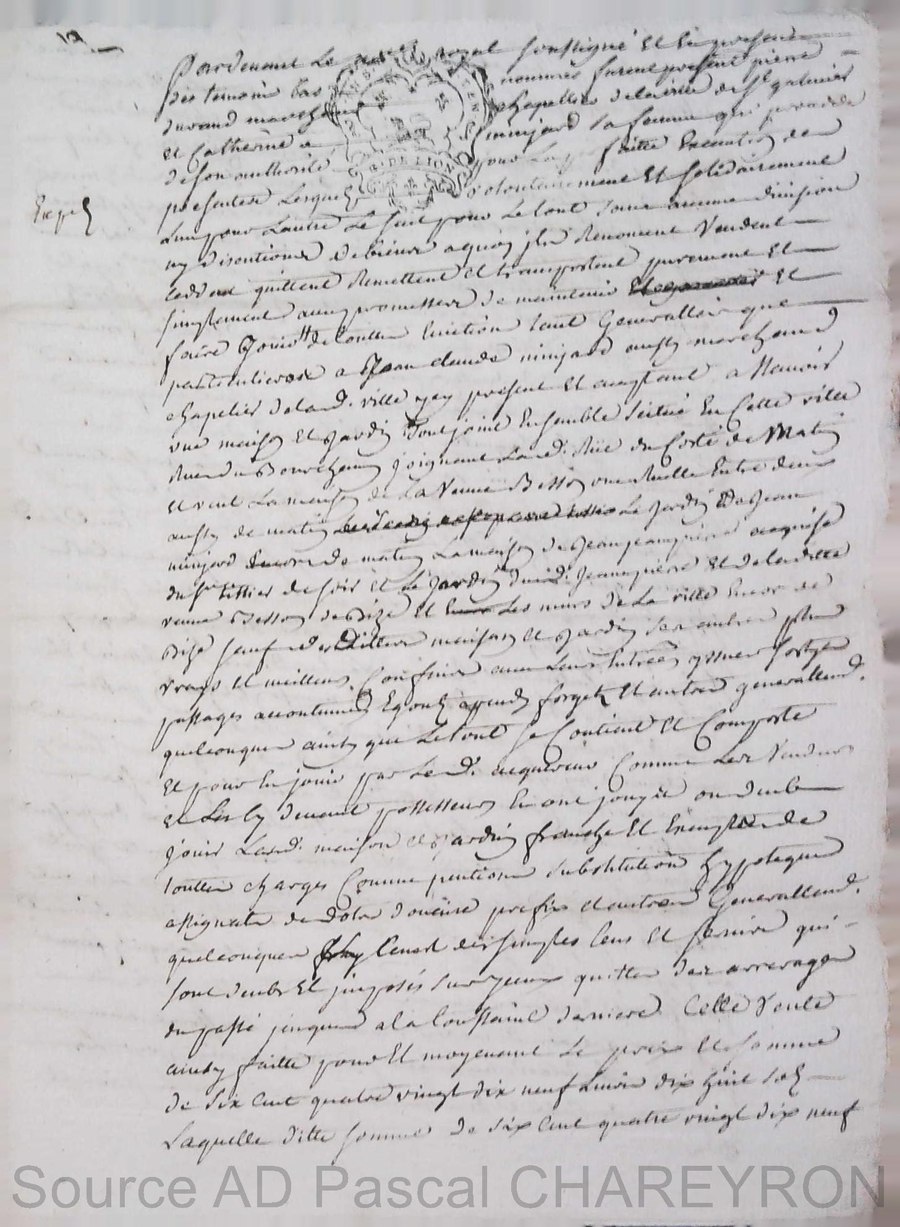 Pardevant Le royal soussigné Et En presence
des temoins bas nommés furent presents pierre
durand march chapellier de la ville de St galmier
et Catherine minjard sa femme qui procede
de son authorité pour La faitte Execution de
presentes Lesquels volontairement Et solidairement
Expé
L'un pour L'autre Le seul pour Le tout sans aucune division
ny discution de biens a quoy ils Renoncent Vendent
ceddent quittent Remettent et transportent purement Et
simplement avec promesses de maintenir Et
faire Jouir de toutte Eviction tant Generalle que
particuliere a Jean claude minjard aussy marchand
chapelier de lad. ville icy present Et acceptant a scavoir
une maison Et Jardin Joint Ensemble scitué En Cette ville
Rue du Joignant Lad. Rue du Costé de Matin
et vent La maison de La Veuve Besson une Ruelle Entre deux
aussy de matin Le Jardin de Jean
minjard de matin La maison de Jean pierre acquise
du Sr tissier de soir et Le Jardin dud. Jean pierre Et de la ditte
veuve Besson de Bize Et Les murs de La ville Encor de
Bize sauf des dittes maison et Jardin ses autres plus
vrays et meilleurs Confins avec Leurs Entrées yssues sorties
passages accoutumés Egouts forgets Et autres generallemt.
quelconques ainsy que Le tout se Contient Et Comporte
Et pour En jouir par Led. acquereur Comme Les Vendeurs
et Les cy devant possesseurs En ont jouyt ou deub
Jouir Lad. maison et Jardin franche Et Exempte de
touttes charges Comme pentions substitution hypoteque
assignats de dots douëire prefix et autres Generallemt.
quelconques sauf des simples Cens Et servis qui
sont deubs Et imposés sur yceux quitte des arrerages
du passé jusques a la toussaint derniere Cette Vente
ainsy faitte pour Et moyenant Le prix Et somme
de six Cent quatre vingt dix neuf Livres dix huit sols
Laquelle ditte somme de six Cent quatre vingt dix neuf
Source AD Pascal CHAREYRON